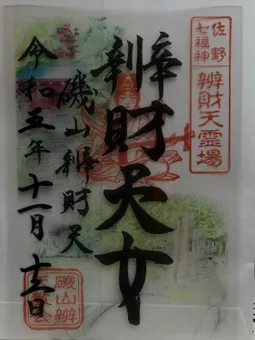 佐野
七福神
辨財天霊場
辨財天女
磯山辨財天
令和五年十一月 日
磯山辨